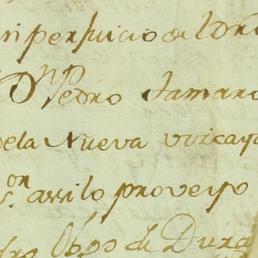 perjuicio de
Dn Pedro Tamaro
dela Nueva vizcaya
on assilo proveyo
Obpo de Dura